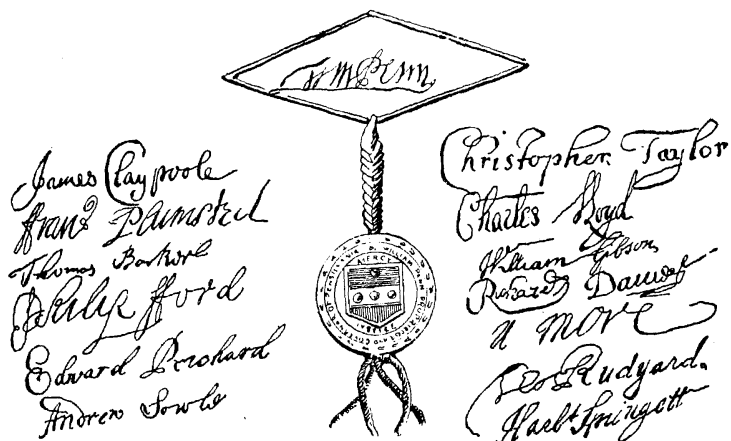 Wm Penn
James Claypoole
Frans Plumsted
Thomas Barker
Philip Ford
Edward Prichard
Andrew Sowle
MERCY
JUSTICE
Christopher Taylor
Charles Lloyd
William Gibson
Richard Davies
n more
Tho Rudyard.
Harbt Springett